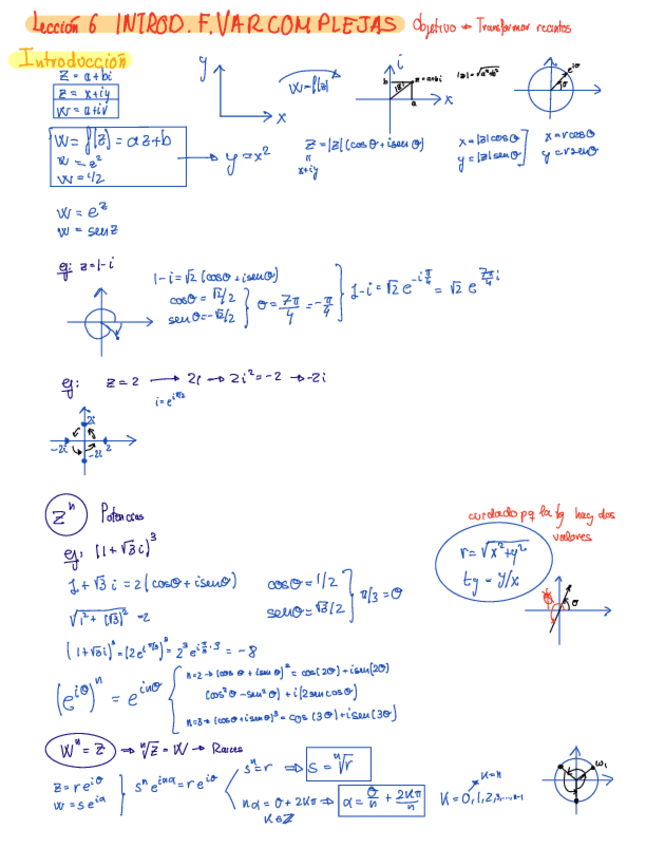 Lección 6 INTROD. F. VAR COMPLEJAS Objetivo → Transformar recintos
Introducción
z = a+bi
z = x+iy
w = u+iv
y
x
w=f(z)
i
b
z=a+bi
|z|
a
x
e^iθ
θ
w = f(z) = az+b
w = e^z
w = 1/z
→ y = x²
z = |z| (cos θ + i sen θ)
x+iy
x = |z| cos θ
y = |z| sen θ
x = r cos θ
y = r sen θ
w = e^z
w = sen z
eg: z = 1-i
1-i = √2 (cos θ + i sen θ)
cos θ = √2/2
sen θ = -√2/2
θ = 7π/4 = -π/4
1-i = √2 e^(-iπ/4) = √2 e^(7π/4 i)
eg: z = 2 → 2i → 2i² = -2 → -2i
i = e^(iπ/2)
2i
-2i
2
-2i
z^n Potencias
cuidado pq la tg hay dos
valores
eg: (1+√3i)³
r = √(x²+y²)
tg = y/x
1+√3 i = 2 (cos θ + i sen θ)
cos θ = 1/2
sen θ = √3/2
π/3 = θ
√(1²+(√3)²) = 2
θ
(1+√3i)³ = (2e^(iπ/3))³ = 2³ e^(iπ/3·3) = -8
(e^iθ)^n = e^inθ
n=2 → (cos θ + i sen θ)² = cos(2θ) + i sen(2θ)
(cos² θ - sen² θ) + i (2 sen cos θ)
n=3 → (cos θ + i sen θ)³ = cos (3θ) + i sen (3θ)
w^n = z ⇒ ⁿ√z = w → Raíces
z = r e^iθ
w = s e^iα
s^n e^inα = r e^iθ
s^n = r ⇒ s = ⁿ√r
nα = θ + 2kπ ⇒ α = θ/n + 2kπ/n
k∈Z
k = 0,1,2,3,...,n-1
k=n
w₁